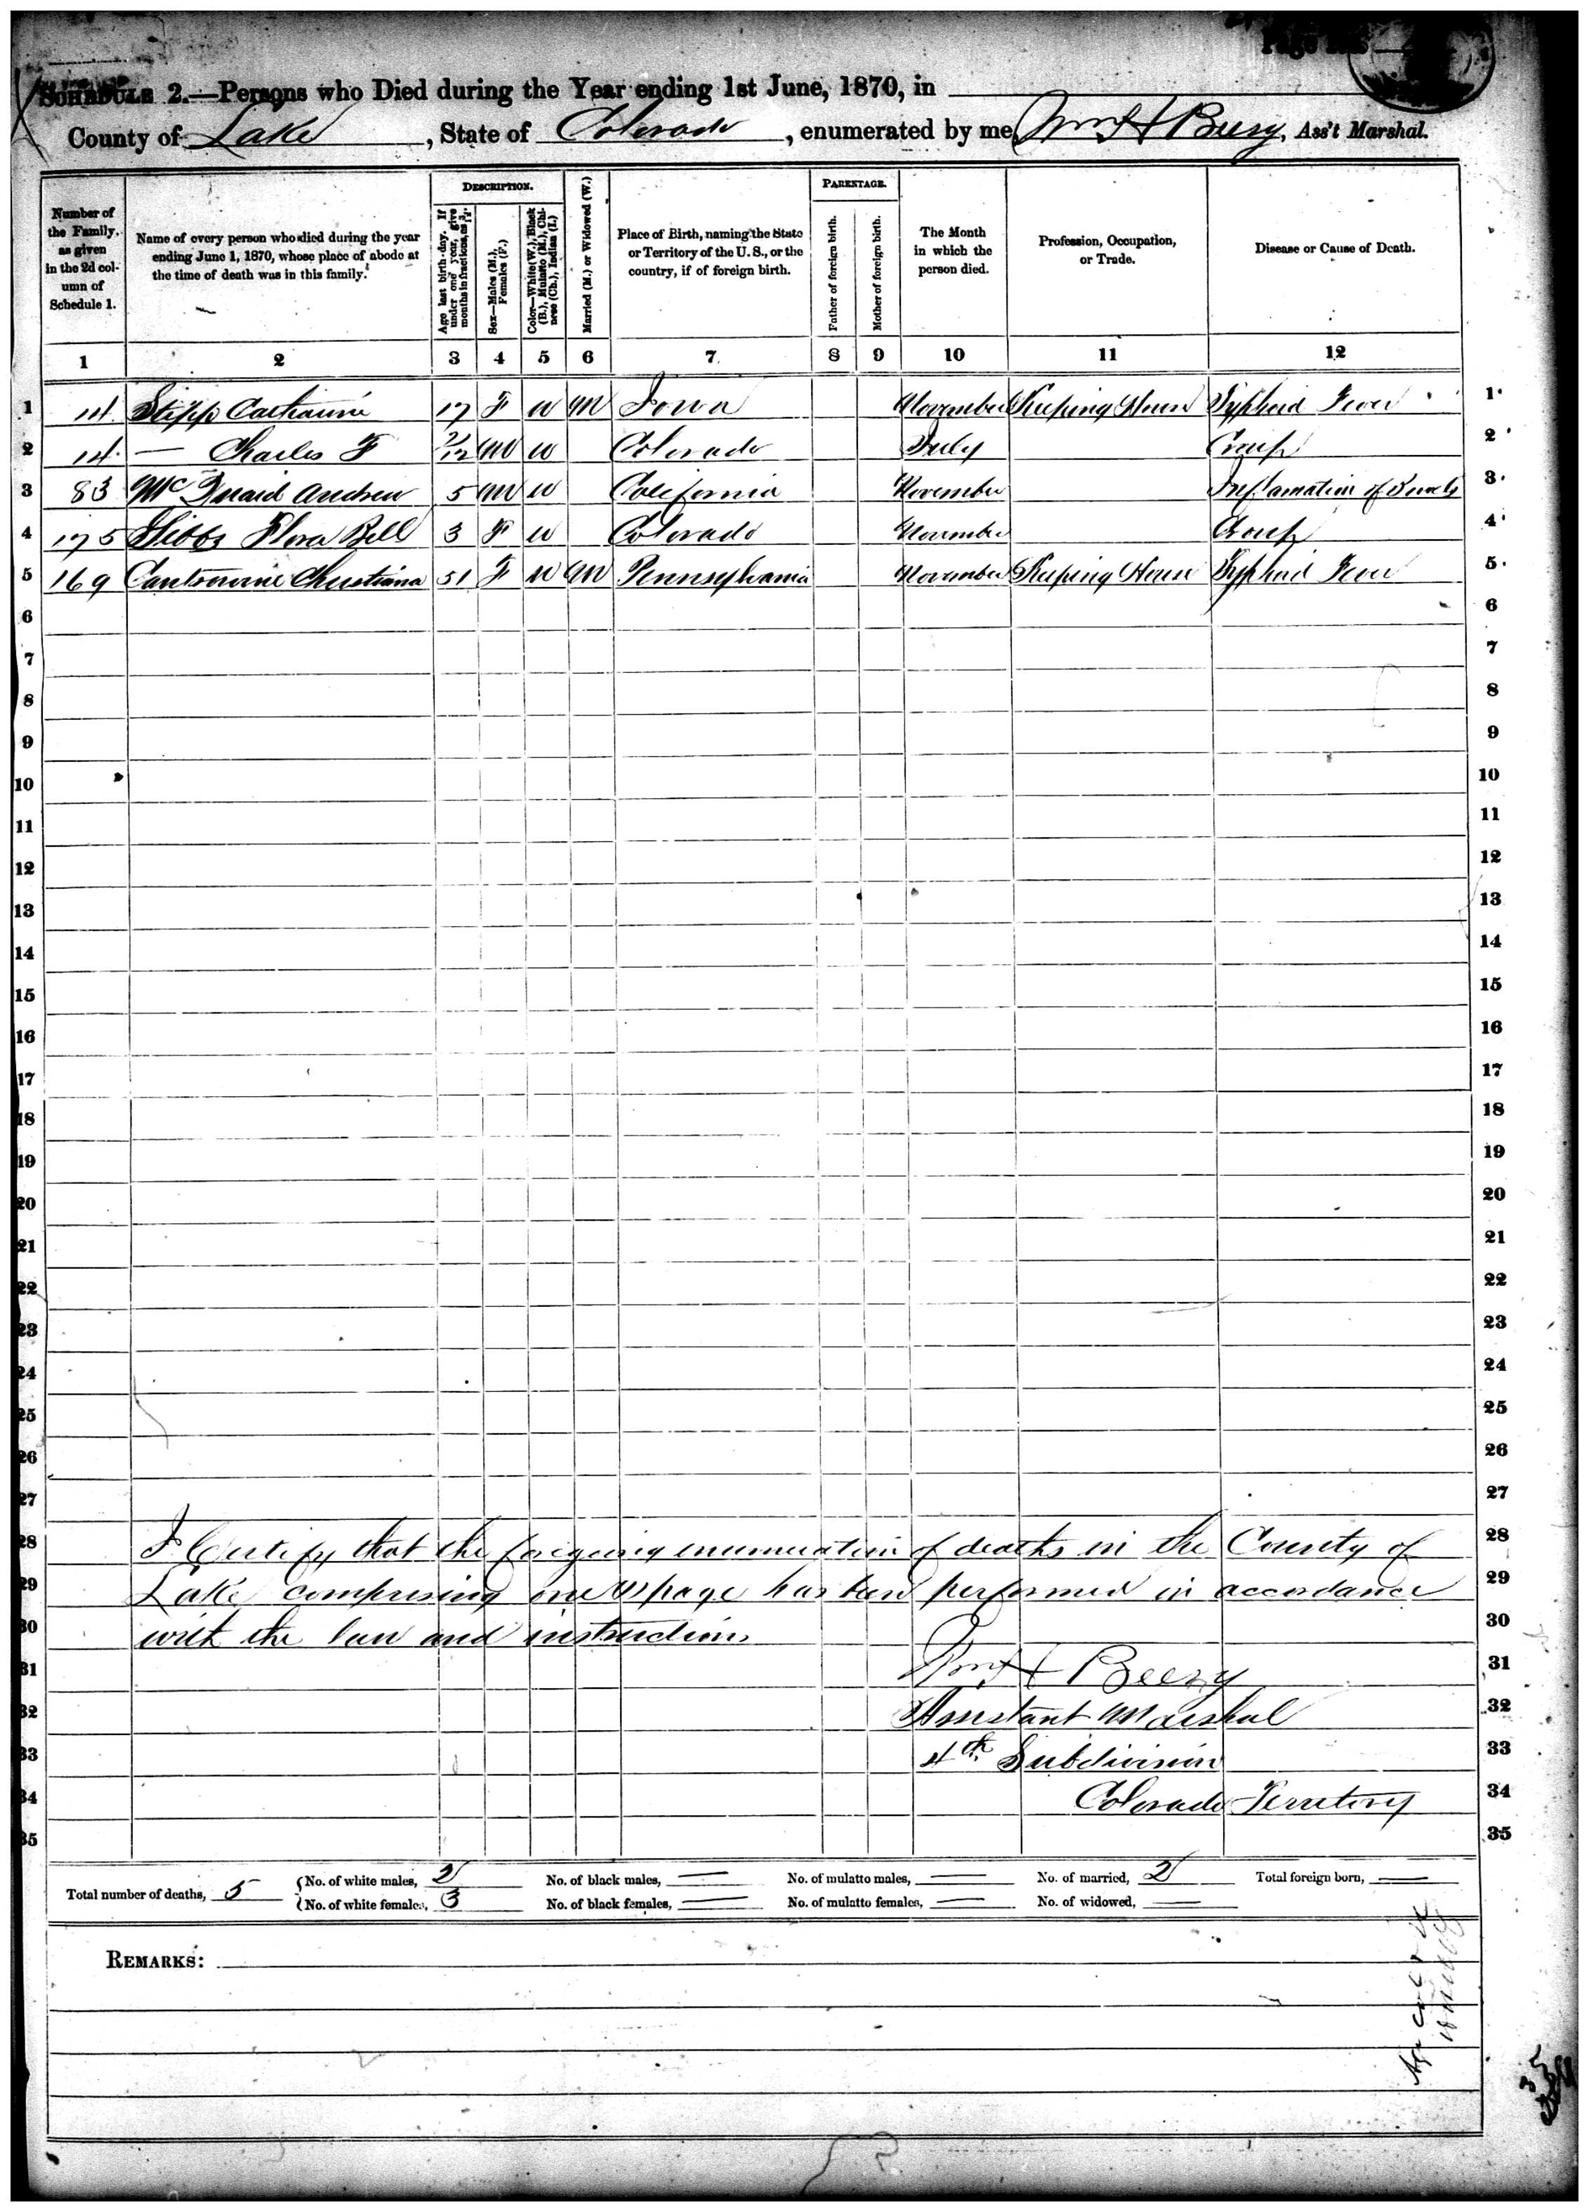 Page No.
SCHEDULE 2.—Persons who Died during the Year ending 1st June, 1870, in
County of Lake, State of Colorado, enumerated by me, Wm H Beery, Ass't Marshal.
Number of the Family, as given in the 2d column of Schedule 1.
Name of every person who died during the year ending June 1, 1870, whose place of abode at the time of death was in this family.
DESCRIPTION.
Age last birth-day. If under one year, give months in fractions, as 3/12.
Sex—Males (M.), Females (F.)
Color—White (W.), Black (B.), Mulatto (M.), Chinese (Ch.), Indian (I.)
Married (M.) or Widowed (W.)
Place of Birth, naming the State or Territory of the U. S., or the country, if of foreign birth.
PARENTAGE.
Father of foreign birth.
Mother of foreign birth.
The Month in which the person died.
Profession, Occupation, or Trade.
Disease or Cause of Death.
1 2 3 4 5 6 7 8 9 10 11 12
1 14 Stipp Catharine 17 F W M Iowa November Keeping House Typhoid Fever 1
2 14 — Charles F 2/12 M W Colorado July Croup 2
3 83 McQuaid Andrew 5 M W California November Inflamation of Bowels 3
4 175 Gibbs Flora Bell 3 F W Colorado November Croup 4
5 169 Christiana 51 F W M Pennsylvania November Keeping House Typhoid Fever 5
6 6
7 7
8 8
9 9
10 10
11 11
12 12
13 13
14 14
15 15
16 16
17 17
18 18
19 19
20 20
21 21
22 22
23 23
24 24
25 25
26 26
27 27
28 I Certify that the foregoing enumeration of deaths in the County of 28
29 Lake comprising one (1) page has been performed in accordance 29
30 with the law and instructions 30
31 Wm H Beery 31
32 Assistant Marshal 32
33 4th Subdivision 33
34 Colorado Territory 34
35 35
Total number of deaths, 5 No. of white males, 2 No. of black males, — No. of mulatto males, — No. of married, 2 Total foreign born, —
No. of white females, 3 No. of black females, — No. of mulatto females, — No. of widowed, —
REMARKS: